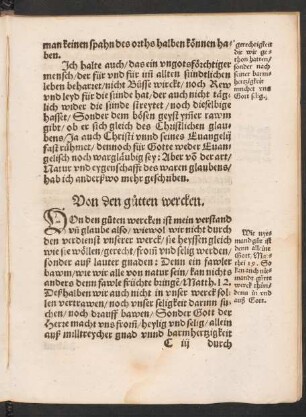 man keinen spahn des orths halben können ha-
ben.
Ich halte auch/das ein vngotsförchtiger
mensch/der für vnd für inn allen sündtlichen
leben beharret/nicht Büsse wirckt/noch Rew
vnd leyd für die sünde hat/der auch nicht täg-
lich wider die sünde streytet/noch dieselbige
hasset/Sonder dem bösen geyst yṁer rawm
gibt/ob er sich gleich des Christlichen glau-
bens/Ja auch Christi vnnd seines Euangelij
fast rühmet/dennoch für Gotte weder Euan-
gelisch noch wargläubig sey: Aber võ der art/
Natur vnd eygenschafft des waren glaubens/
hab ich anderßwo mehr geschriben.
gerechtigkeit
die wir ge-
thon hatten/
sonder noch
seiner barm-
hertzigkeit
machet vns
Gott selig.
Von den gütten wercken.
VOn den gütten wercken ist mein verstand
vñ glaube also/wiewol wir nicht durch
den verdienst vnserer werck/sie heyssen gleich
wie sie wöllen/gerecht/from̃ vnd selig werden/
sonder auß lauter gnaden: Denn ein fawler
bawm/wie wir alle von natur sein/kan nicht
anders denn fawle früchte bringẽ/Matth.12.
Deßhalben wir auch nicht in vnser werck sol-
len vertrawen/noch vnser seligkeit darinn su-
chen/noch drauff bawen/Sonder Gott der
Herre macht vns from̃/heylig vnd selig/allein
auß milltreycher gnad vnnd barmhertzigkeit
Wie nye-
mand gůt ist
denn allein
Gott, Mat-
thei 19. So
kan auch nie-
mandt gůtte
werck thun/
denn in vnd
auß Gott.
C iij durch